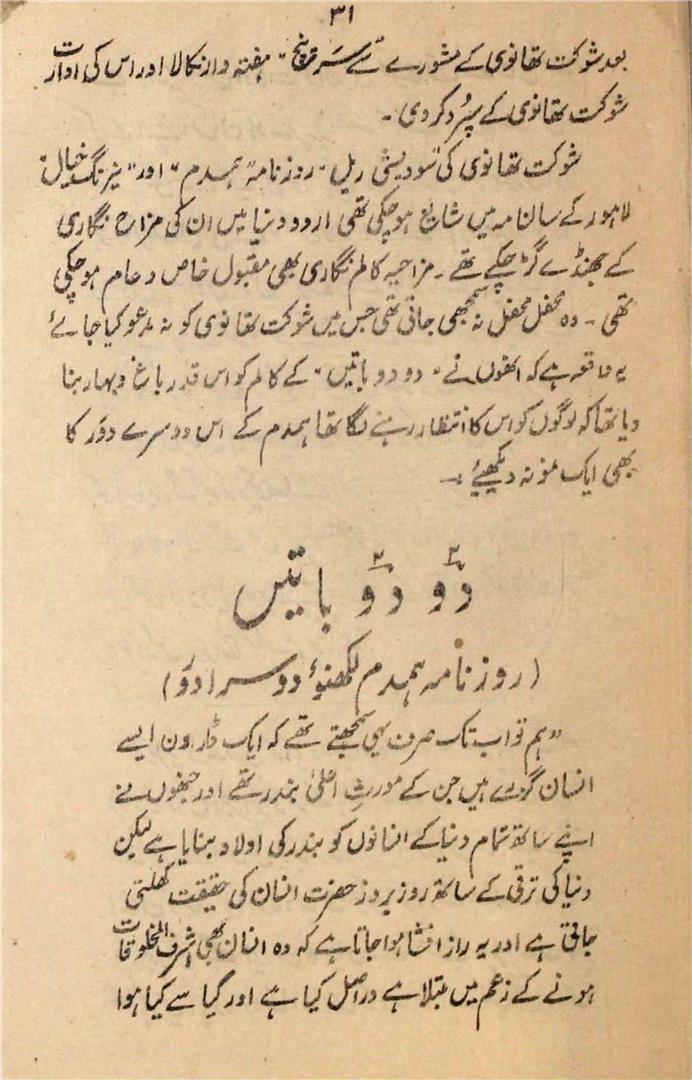 ۳۱
بعد شوکت تھانوی کے مشورے سے "سرپنچ" ہفتہ وار نکالا اور اس کی ادارت
شوکت تھانوی کے سپرد کر دی ۔
شوکت تھانوی کی سودیشی ریل "روزنامہ ہمدم" اور "نیرنگ خیال"
لاہور کے سالنامہ میں شایع ہو چکی تھی اردو دنیا میں ان کی مزاح نگاری
کے جھنڈے گڑ چکے تھے ۔ مزاحیہ کالم نگاری بھی مقبول خاص و عام ہو چکی
تھی ۔ وہ محفل محفل نہ سمجھی جاتی تھی جس میں شوکت تھانوی کو نہ مدعو کیا جائے
یہ واقعہ ہے کہ انھوں نے "دو دو باتیں" کے کالم کو اس قدر باغ و بہار بنا
دیا تھا کہ لوگوں کو اس کا انتظار رہنے لگا تھا ہمدم کے اس دوسرے دور کا
بھی ایک نمونہ دیکھیئے :۔
دو دو باتیں
(روزنامہ ہمدم لکھنؤ دوسرا دور)
"ہم تو اب تک صرف یہی سمجھتے تھے کہ ایک ڈارون ایسے
انسان گزرے ہیں جن کے مورث اعلیٰ بندر تھے اور جنھوں نے
اپنے ساتھ تمام دنیا کے انسانوں کو بندر کی اولاد بنایا ہے لیکن
دنیا کی ترقی کے ساتھ روز بروز حضرت انسان کی حقیقت کھلتی
جاتی ہے اور یہ راز افشا ہوا جاتا ہے کہ وہ انسان بھی اشرف المخلوقات
ہونے کے زعم میں مبتلا ہے دراصل کیا ہے اور کیا سے کیا ہوا